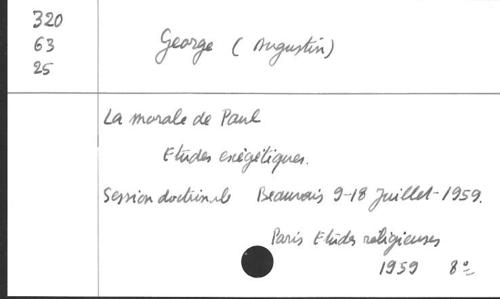 320
63
25
George (Augustin)
La morale de Paul
Etudes exégétiques.
Session doctrinale Beauvais 9-18 Juillet-1959.
Paris Etudes religieuses
1959 8º